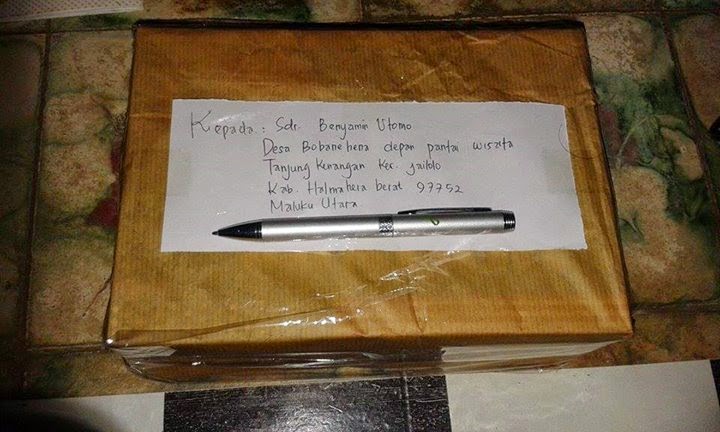 Kepada : Sdr. Benyamin Utomo
Desa Bobanehena depan pantai wisata
Tanjung Kenangan Kec. jailolo
Kab. Halmahera berat 97752
Maluku Utara.